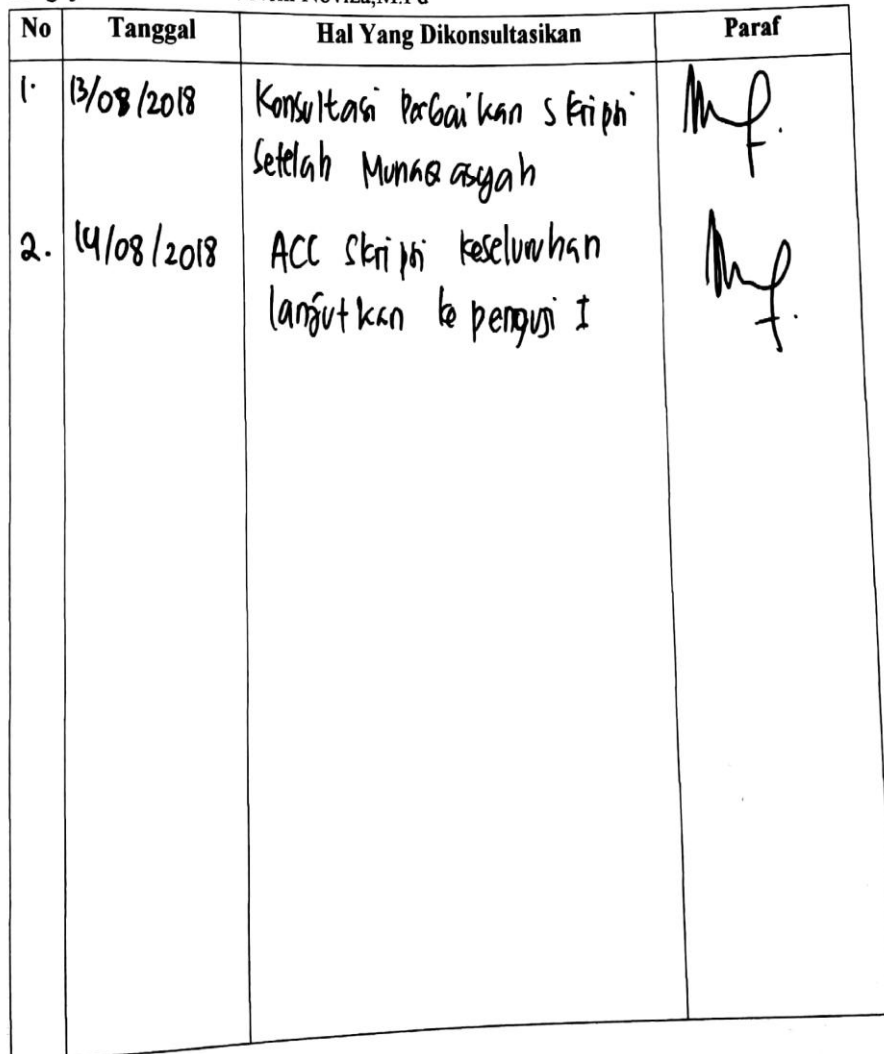 Noviza,M.Pd
No Tanggal Hal Yang Dikonsultasikan Paraf
1. 13/08/2018 Konsultasi Perbaikan Skripsi
Setelah Munaqasyah
2. 14/08/2018 ACC Skripsi keseluruhan
lanjutkan ke penguji I